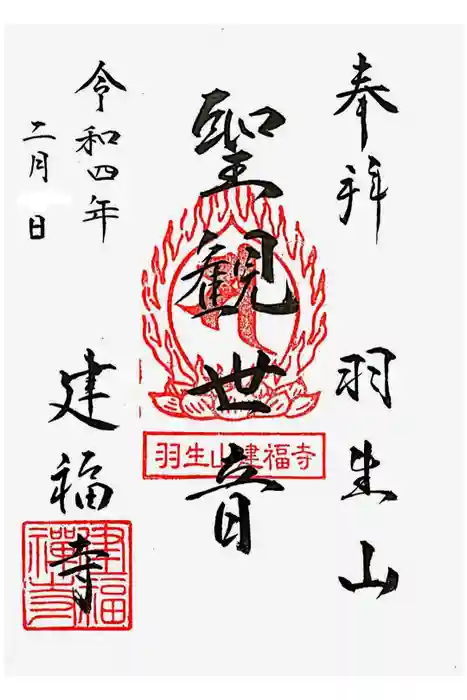 奉拝
羽生山
聖観世音
羽生山建福寺
令和四年
二月 日
建福寺
建福禅寺